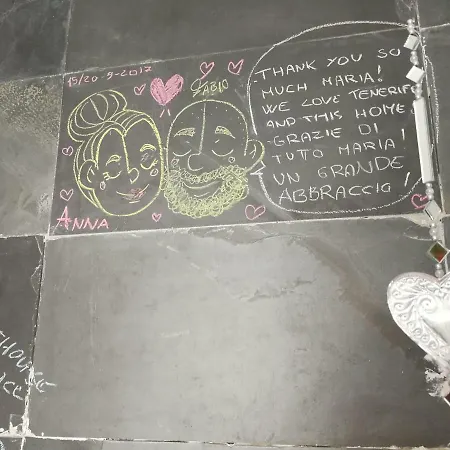 15/20-9-2017
FABIO
ANNA
THANK YOU SO
MUCH MARIA!
WE LOVE TENERIFE
AND THIS HOME!
GRAZIE DI
TUTO MARIA!
UN GRANDE
ABBRACCIO!